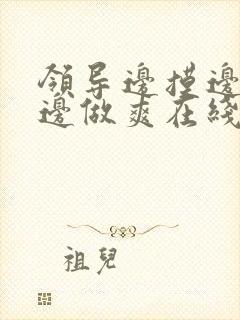 領导邊摸邊
邊做爽在綫
祖兒